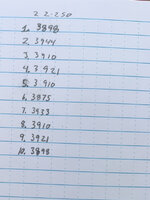 22-250
1. 3898
2. 3944
3. 3910
4. 3921
5. 3910
6. 3875
7. 3933
8. 3910
9. 3921
10. 3898